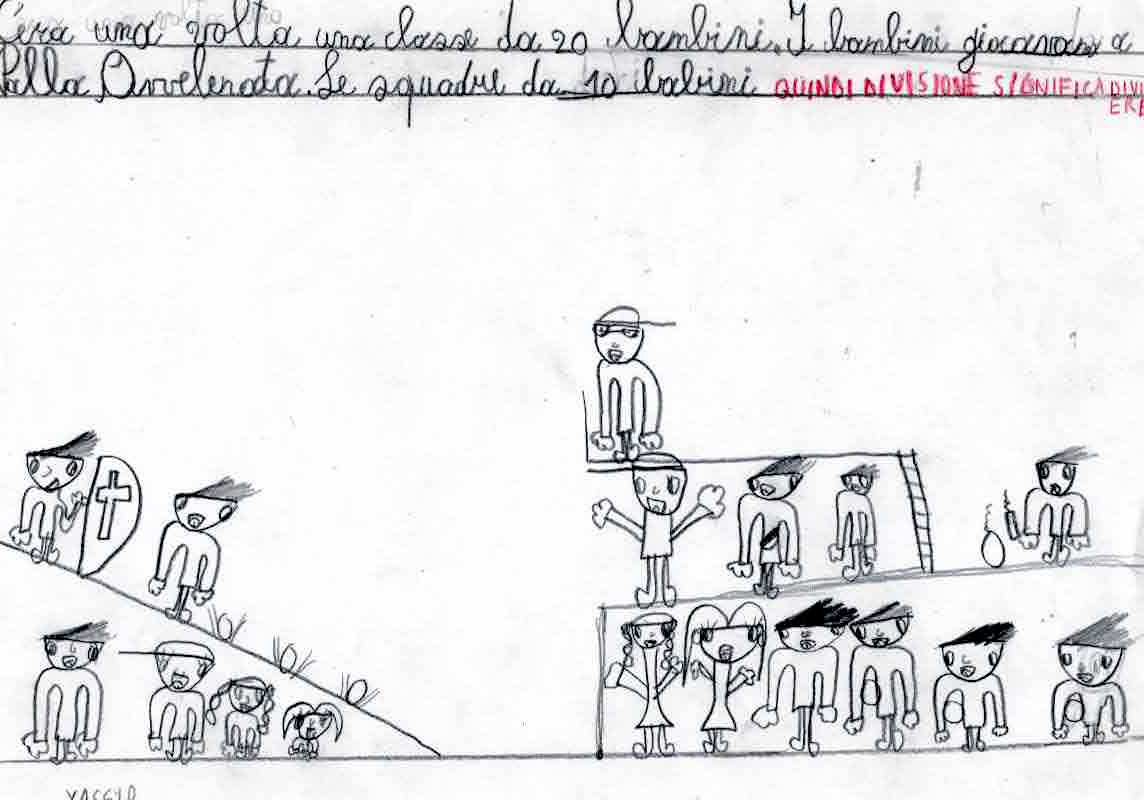 C'era una volta una classe da 20 bambini. I bambini giocavano a
Palla Avvelenata. Le squadre da 10 babini QUINDI DIVISIONE SIGNIFICA DIVI
ERE